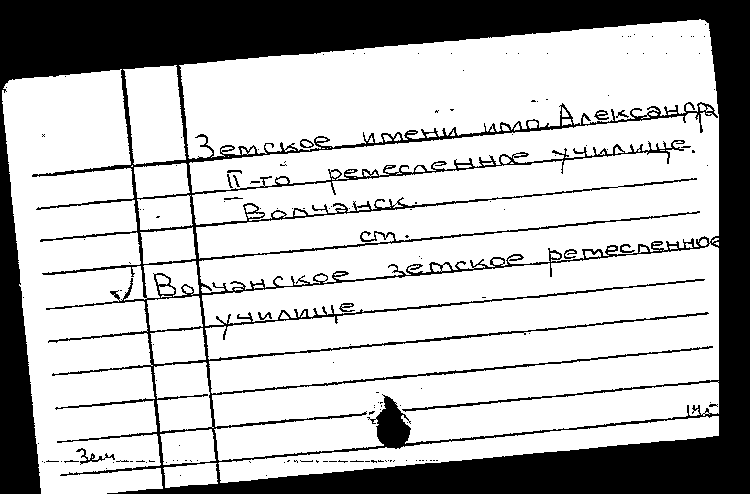 Земское имени имп. Александра
II-го ремесленное училище.
Волчанск.
ст.
Волчанское земское ремесленное
училище.
Зем